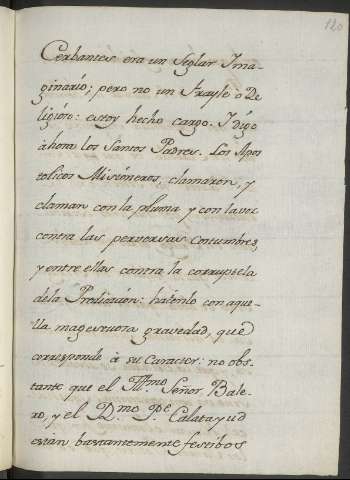 120
Cerbantes era un Seglar Ima-
ginário; pero no un Frayle ò Re
ligióso: estoy hecho cargo. Y digo
àhora los Santos Padres. Los Apos
tolicos Misióneros, clamaron, y
claman con la pluma y con la voz
contra las perversas costumbres,
y entre ellas contra la corruptela
dela Predicación: hacenlo con aque-
lla magestuosa gravedad, que
corresponde à su Caracter: no obs-
tante que el Illmo Señor Bale-
ro, y el Rmo Pe Calatayud
están bastantemente festibos